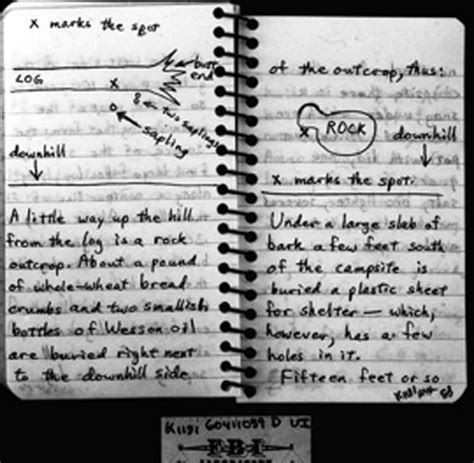 x marks the spot
butt
end
LOG
x
o
8 ← two saplings
sapling
downhill
A little way up the hill
from the log is a rock
outcrop. About a pound
of whole-wheat bread
crumbs and two smallish
bottles of Wesson oil
are buried right next
to the downhill side
of the outcrop, thus:
x
ROCK
downhill
x marks the spot.
Under a large slab of
bark a few feet south
of the campsite is
buried a plastic sheet
for shelter — which,
however, has a few
holes in it.
Fifteen feet or so
FBI